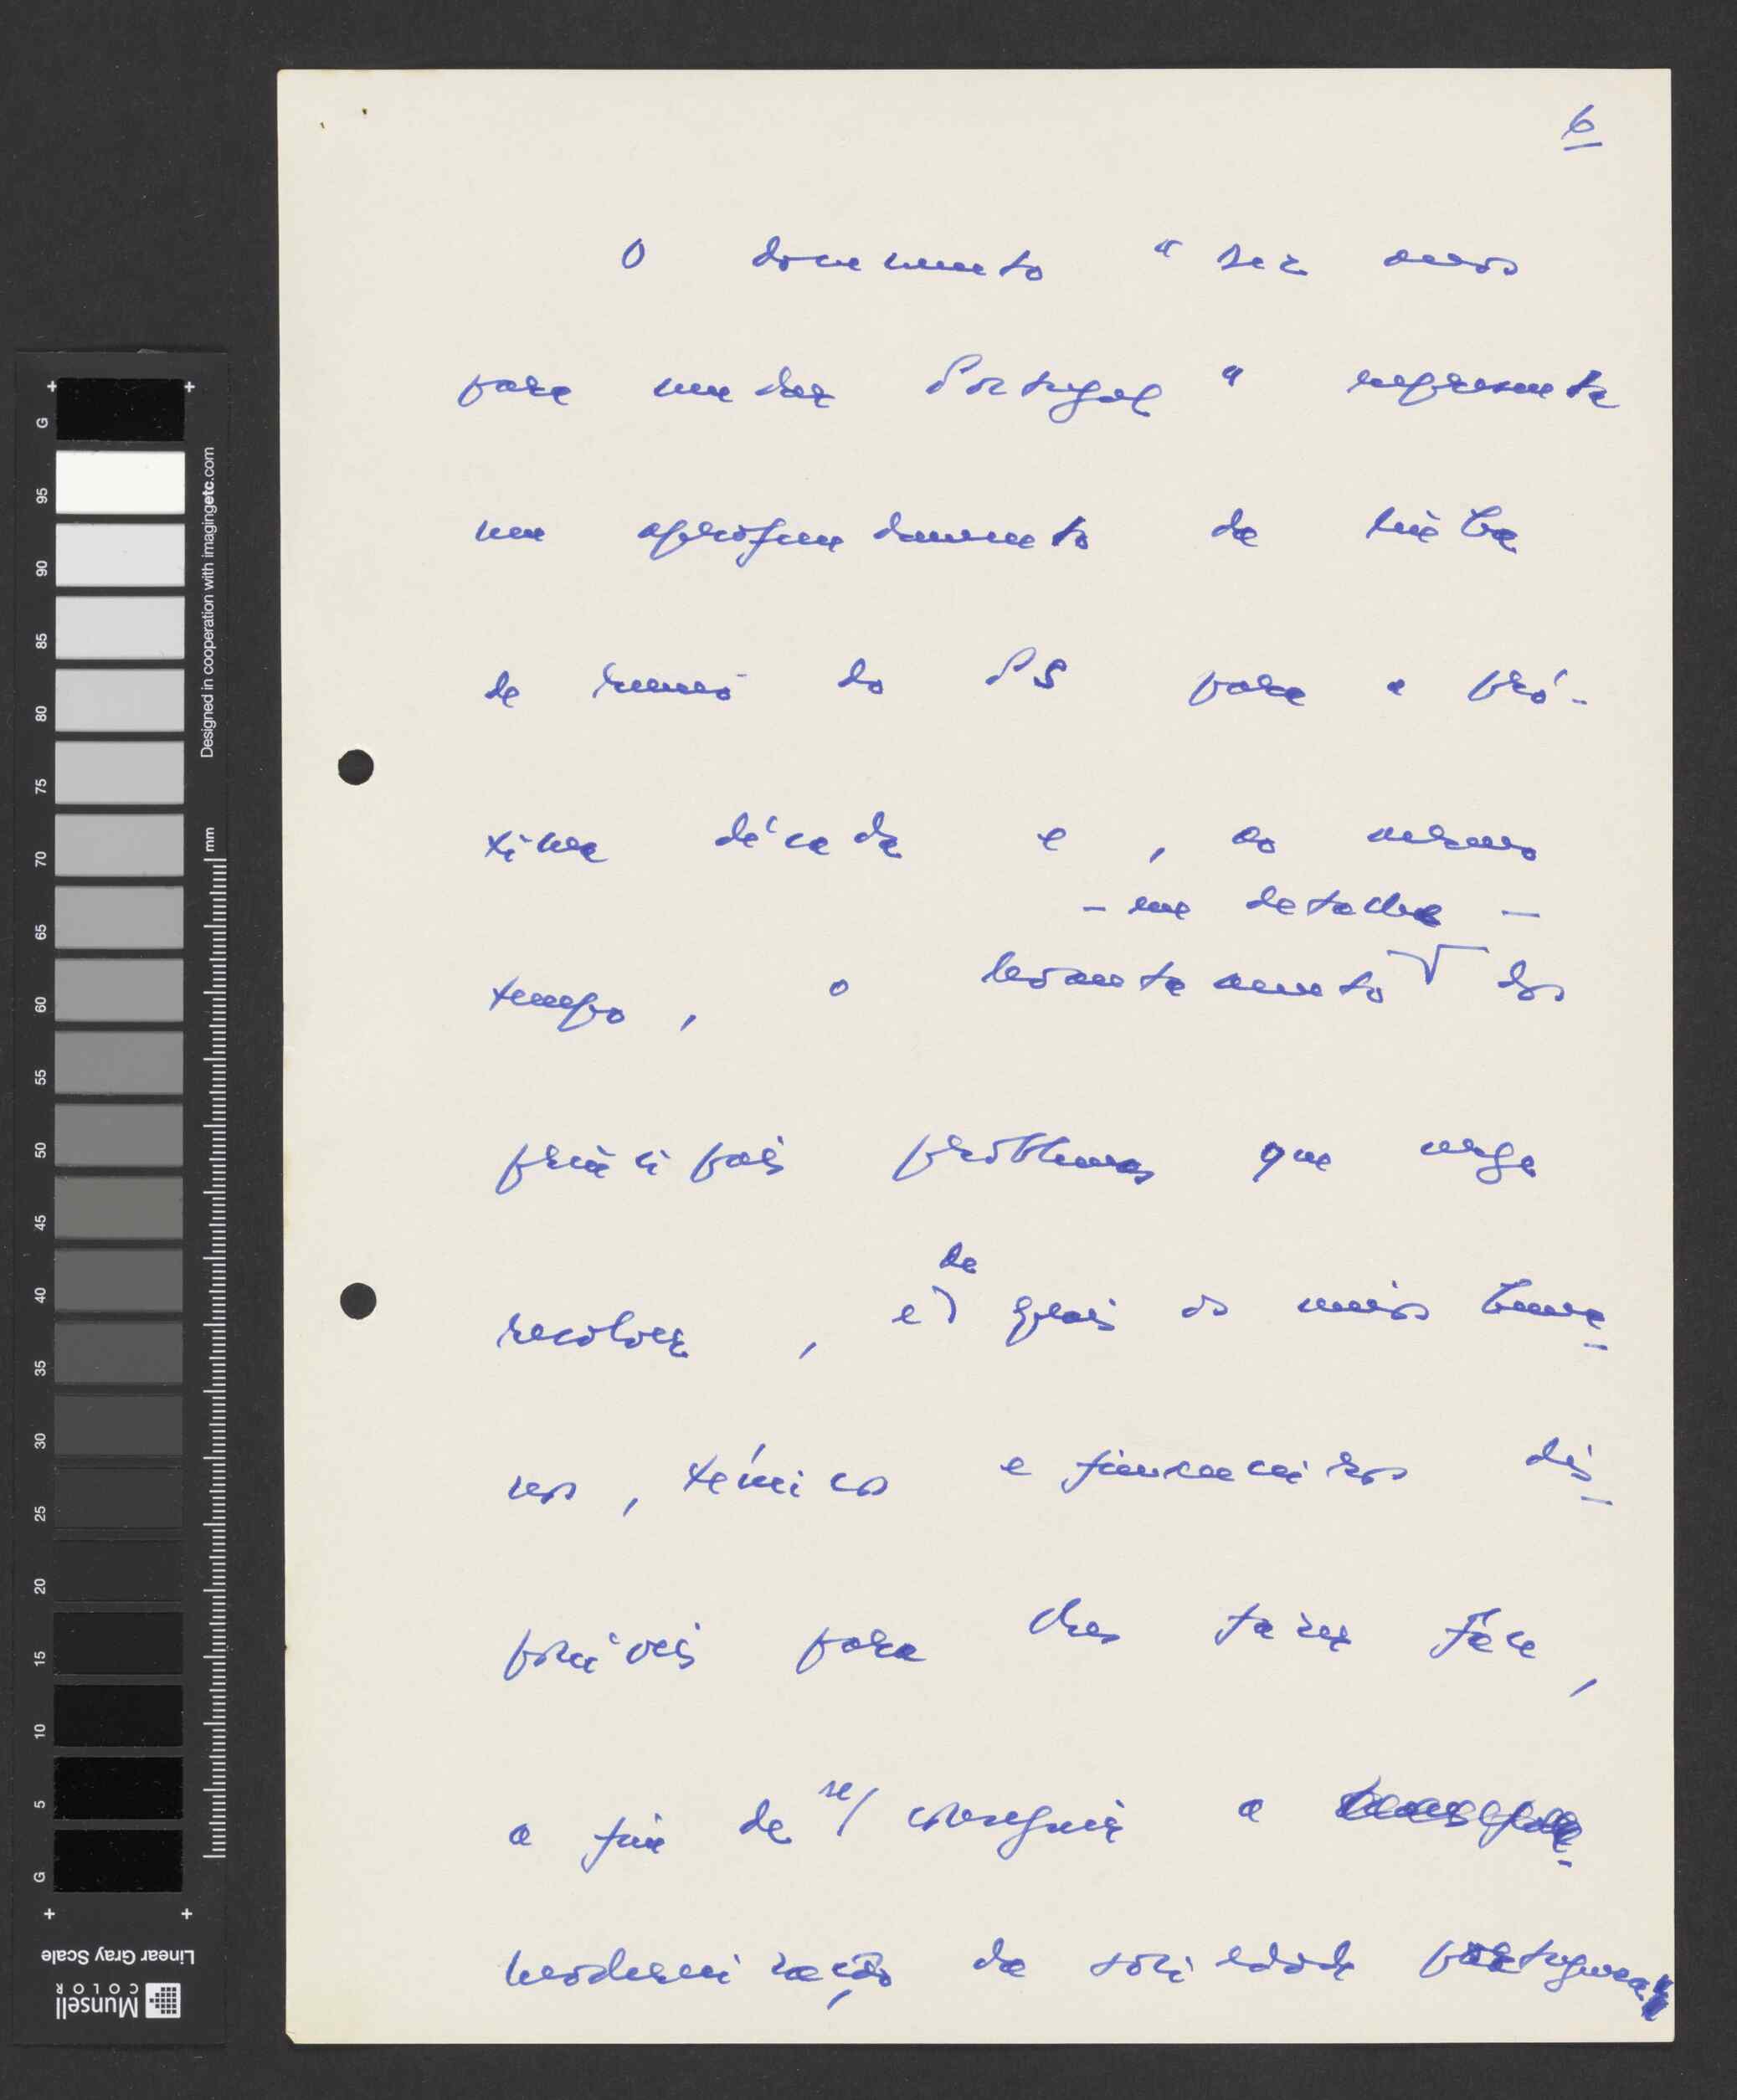 6
O documento "dez anos
para mudar Portugal" representa
um aprofundamento da linha
de rumo do PS para a pró-
xima década e, ao mesmo
- em detalhe -
tempo, o levantamento dos
principais problemas que urge
de
resolver, e quais os meios huma-
nos, técnicos e financeiros dis-
poníveis para lhes fazer face,
a fim de se/ conseguir a
modernização da sociedade portuguesa
G
95
90
85
80
75
70
65
60
55
50
45
40
35
30
25
20
15
10
5
G
Designed in cooperation with imagingetc.com
mm
Linear Gray Scale
Munsell
COLOR